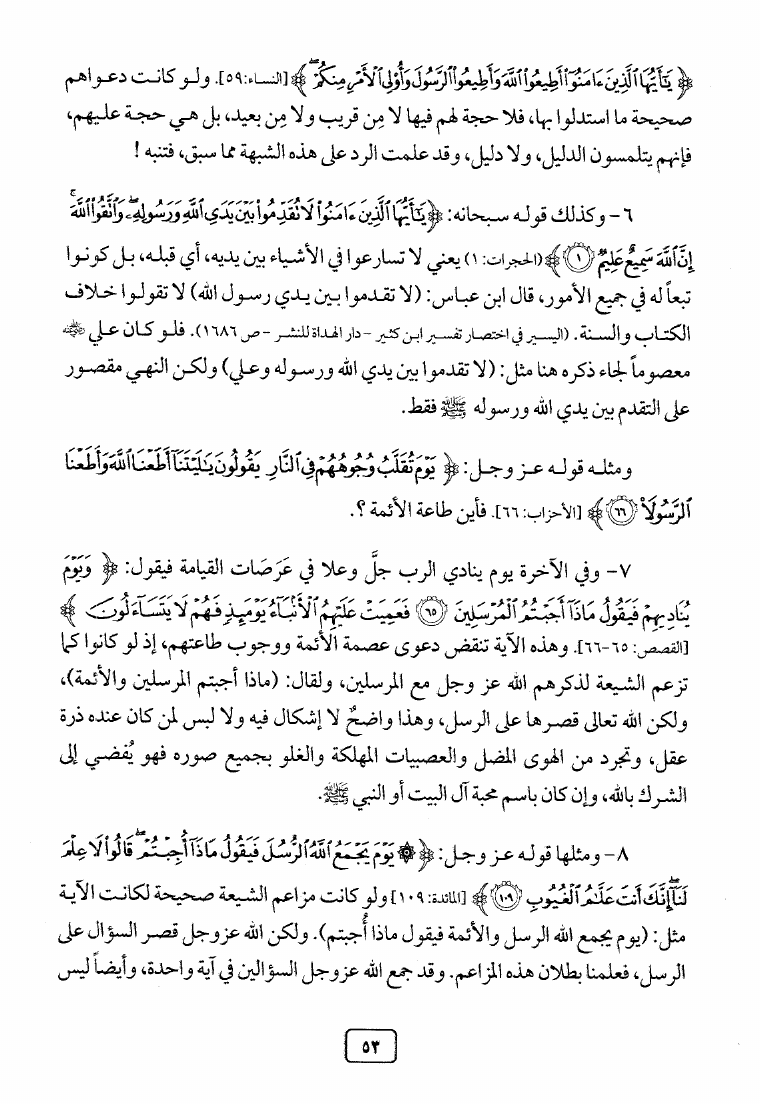 ﴿ يَٰٓأَيُّهَا ٱلَّذِينَ ءَامَنُوٓا۟ أَطِيعُوا۟ ٱللَّهَ وَأَطِيعُوا۟ ٱلرَّسُولَ وَأُو۟لِى ٱلْأَمْرِ مِنكُمْ ۖ ﴾ [النساء: ٥٩]. ولو كانت دعواهم
صحيحة ما استدلوا بها، فلا حجة لهم فيها لا مِن قريب ولا مِن بعيد، بل هي حجة عليهم،
فإنهم يتلمسون الدليل، ولا دليل، وقد علمت الرد على هذه الشبهة مما سبق، فتنبه !
٦- وكذلك قوله سبحانه: ﴿ يَٰٓأَيُّهَا ٱلَّذِينَ ءَامَنُوا۟ لَا تُقَدِّمُوا۟ بَيْنَ يَدَىِ ٱللَّهِ وَرَسُولِهِۦ ۖ وَٱتَّقُوا۟ ٱللَّهَ ۚ
إِنَّ ٱللَّهَ سَمِيعٌ عَلِيمٌ ١ ﴾ (الحجرات: ١) يعني لا تسارعوا في الأشياء بين يديه، أي قبله، بل كونوا
تبعاً له في جميع الأمور، قال ابن عباس: (لا تقدموا بين يدي رسول الله) لا تقولوا خلاف
الكتاب والسنة. (اليسير في اختصار تفسير ابن كثير -دار الهداة للنشر -ص ١٦٨٦). فلو كان علي
معصوماً لجاء ذكره هنا مثل: (لا تقدموا بين يدي الله ورسوله وعلي) ولكن النهي مقصور
على التقدم بين يدي الله ورسوله ﷺ فقط.
ومثله قوله عز وجل: ﴿ يَوْمَ تُقَلَّبُ وُجُوهُهُمْ فِى ٱلنَّارِ يَقُولُونَ يَٰلَيْتَنَآ أَطَعْنَا ٱللَّهَ وَأَطَعْنَا
ٱلرَّسُولَا۠ ٦٦ ﴾ [الأحزاب: ٦٦]. فأين طاعة الأئمة ؟.
٧- وفي الآخرة يوم ينادي الرب جلَّ وعلا في عَرَصَات القيامة فيقول: ﴿ وَيَوْمَ
يُنَادِيهِمْ فَيَقُولُ مَاذَآ أَجَبْتُمُ ٱلْمُرْسَلِينَ ٦٥ فَعَمِيَتْ عَلَيْهِمُ ٱلْأَنۢبَآءُ يَوْمَئِذٍ فَهُمْ لَا يَتَسَآءَلُونَ ﴾
[القصص: ٦٥-٦٦]. وهذه الآية تنقض دعوى عصمة الأئمة ووجوب طاعتهم، إذ لو كانوا كما
تزعم الشيعة لذكرهم الله عز وجل مع المرسلين، ولقال: (ماذا أجبتم المرسلين والأئمة)،
ولكن الله تعالى قصرها على الرسل، وهذا واضحٌ لا إشكال فيه ولا لبس لمن كان عنده ذرة
عقل، وتجرد من الهوى المضل والعصبيات المهلكة والغلو بجميع صوره فهو يُفضي إلى
الشرك بالله، وإن كان باسم محبة آل البيت أو النبي ﷺ.
٨- ومثلها قوله عز وجل: ﴿ ۞ يَوْمَ يَجْمَعُ ٱللَّهُ ٱلرُّسُلَ فَيَقُولُ مَاذَآ أُجِبْتُمْ ۖ قَالُوا۟ لَا عِلْمَ
لَنَآ ۖ إِنَّكَ أَنتَ عَلَّٰمُ ٱلْغُيُوبِ ١٠٩ ﴾ [المائدة: ١٠٩] ولو كانت مزاعم الشيعة صحيحة لكانت الآية
مثل: (يوم يجمع الله الرسل والأئمة فيقول ماذا أُجبتم). ولكن الله عز وجل قصر السؤال على
الرسل، فعلمنا بطلان هذه المزاعم. وقد جمع الله عز وجل السؤالين في آية واحدة، وأيضاً ليس
٥٣